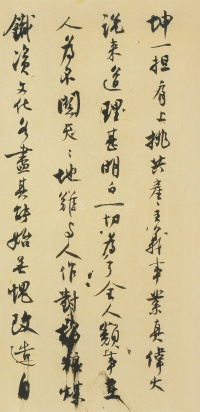 坤一担肩上挑共产主义事业真伟大
说来道理甚明白一切为了全人类事在
人为不闻天天地难与人作对粮煤
钢渍文化各尽其能始无愧改造自